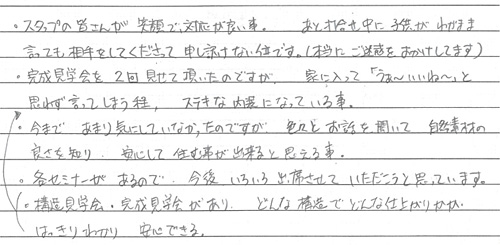 ・スタッフの皆さんが笑顔で、対応が良い事。 あと打合せ中に子供がわがまま
言っても相手をしてくださって申し訳けない位です。(本当にご迷惑をおかけしてます)
・完成見学会を2回見せて頂いたのですが、家に入って「うぁ〜いいね〜」と
思わず言ってしまう程、ステキな内装になっている事。
・今まであまり気にしていなかったのですが 色々とお話を聞いて自然素材の
良さを知り、安心して住む事が出来ると思える事。
・各セミナーがあるので、今後いろいろ出席させていただこうと思っています。
・構造見学会・完成見学会があり、どんな構造でどんな仕上がりかが
はっきりわかり 安心できる。